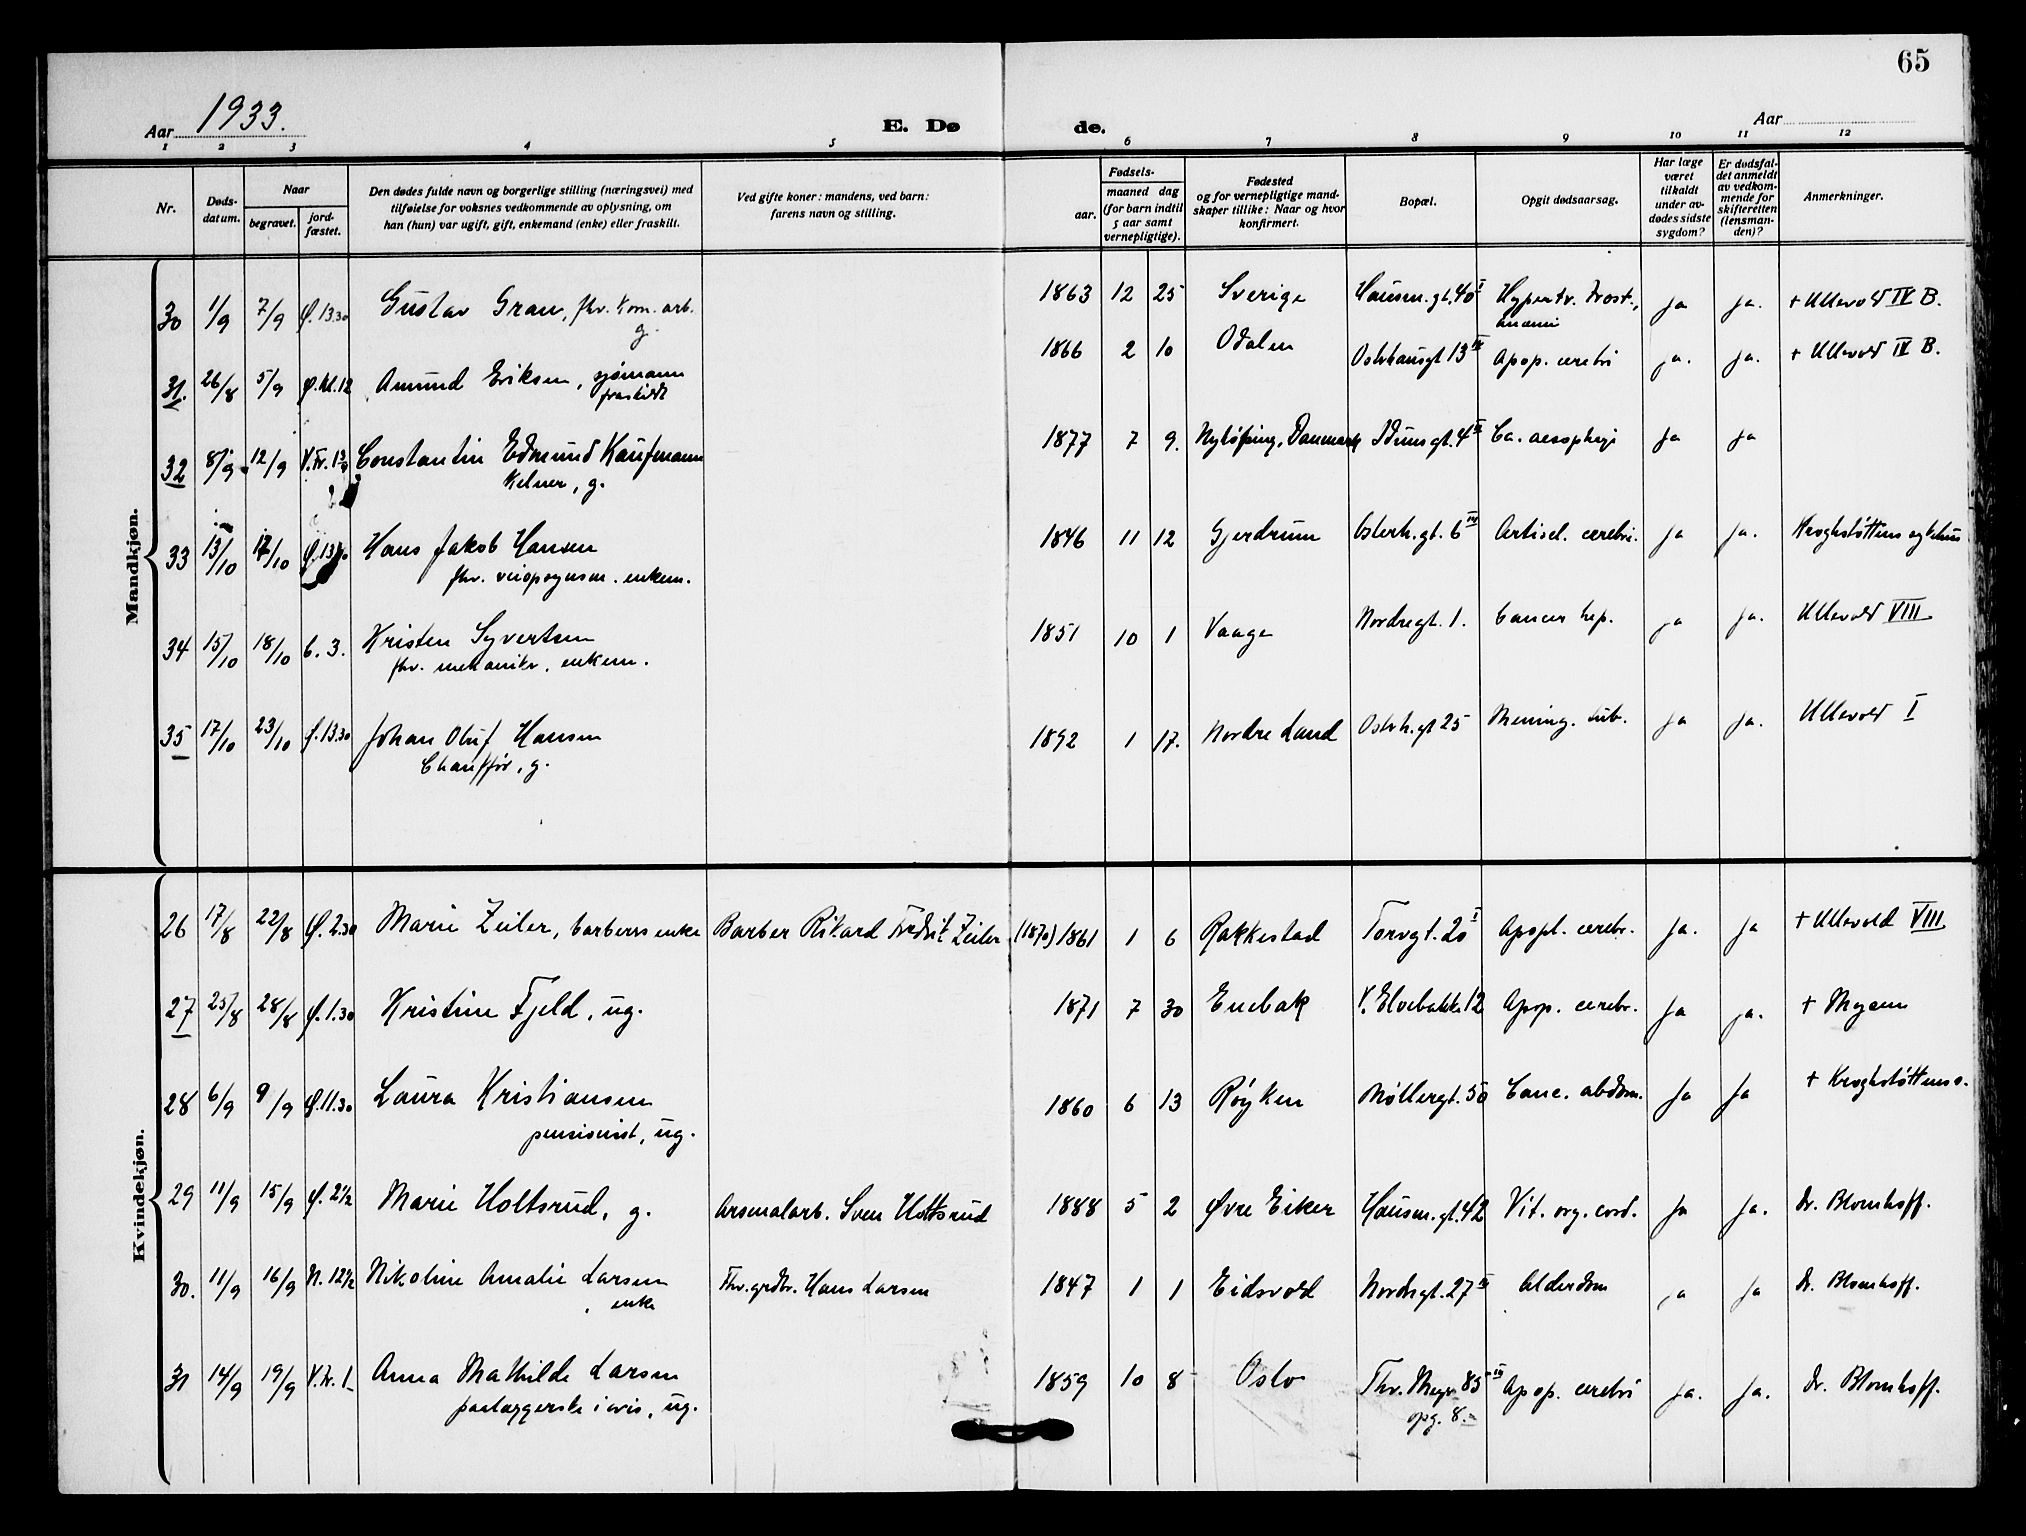 65
Aar 1933.
E. Dø de.
Aar
1 2 3 4 5 6 7 8 9 10 11 12
Nr.
Døds-datum.
Naar
begravet.
jord-fæstet.
Den dødes fulde navn og borgerlige stilling (næringsvei) med
tilføielse for voksnes vedkommende av oplysning, om
han (hun) var ugift, gift, enkemand (enke) eller fraskilt.
Ved gifte koner: mandens, ved barn:
farens navn og stilling.
Fødsels-
aar. maaned dag
(for barn indtil
5 aar samt
vernepligtige).
Fødested
og for vernepligtige mand-
skaper tillike: Naar og hvor
konfirmert.
Bopæl.
Opgit dødsaarsag.
Har læge
været
tilkaldt
under av-
dødes sidste
sygdom?
Er dødsfal-
det anmeldt
av vedkom-
mende for
skifteretten
(lensman-
den)?
Anmerkninger.
Mandkjøn.
30 1/9 7/9 Ø. 13.30 Gustav Gran, fhv. kom. arb. 1863 12 25 Sverige Hausm. gt. 40 I Hypertr. prost., ja ja. + Ullevold IV B.
g. anæmi
31. 26/8 5/9 Ø. kl. 12 Amund Eriksen, sjømann 1866 2 10 Odalen Osterhausgt 13 Apop. cerebri ja. ja. + Ullevold IV B.
fraskildt
32 8/9 12/9 V. Kr. Constantin Edmund Kaufmann 1877 7 9. Nykøbing, Danmark Idunsgt. 4 Ca. aesophagi ja ja
Kelner, g.
33 13/10 17/10 Ø. 13.30 Hans Jakob Hansen 1846 11 12 Gjerdrum Osterh. gt. 6 III Artiscl. cerebri. ja ja. Kroghstøttens sykehus
fhv. veiopsynsm. enkem.
34 15/10 18/10 6. 3. Kristen Syvertsen 1851 10 1 Vaage Nordregt. 1. Cancer hep. ja ja. Ullevold VIII
fhv. mekaniker, enkem.
35 17/10 23/10 Ø. 13.30 Johan Oluf Hansen 1892 1 17. Nordre Land Osterh. gt 25 Mening. tub. ja ja. Ullevold I
Chauffør, g.
Kvindekjøn.
26 17/8 22/8 Ø. 2.30 Marie Zeiler, barbers enke Barber Rikard Fredrik Zeiler (1870) 1861 1 6 Rakkestad Torvgt. 20 I Apopl. cerebr. ja. ja + Ullevold VIII
27 25/8 28/8 Ø. 1.30 Kristine Fjeld, ug. 1871 7 30 Enebak V. Elvebakke 12 Apop. cerebr. ja ja. +
28 6/9 9/9 Ø. 11.30 Laura Kristiansen 1860 6 13 Røyken Møllergt. 50 Canc. abdom. ja ja + Kroghstøttens s.
pensionist, ug.
29 11/9 15/9 Ø. 2 1/2 Marie Holtsrud, g. Arsenalarb. Sven Holtsrud 1888 5 2 Øvre Eiker Hausm. gt. 42 Vit. org. cord. ja ja. Dr. Blomhoff.
30. 11/9 16/9 N. 12 1/2 Nikoline Amalie Larsen Fhv. grdbr. Hans Larsen 1847 1 1 Eidsvold Nordregt. 27 Alderdom ja ja Dr. Blomhoff.
, enke
31 14/9 19/9 V. Kr. 1 Anna Mathilde Larsen 1859 10 8 Oslo Thv. Meyers 85 III Apop. cerebri ja. ja. Dr. Blomhoff.
paalæggerske i avis, ug. opg. 8.